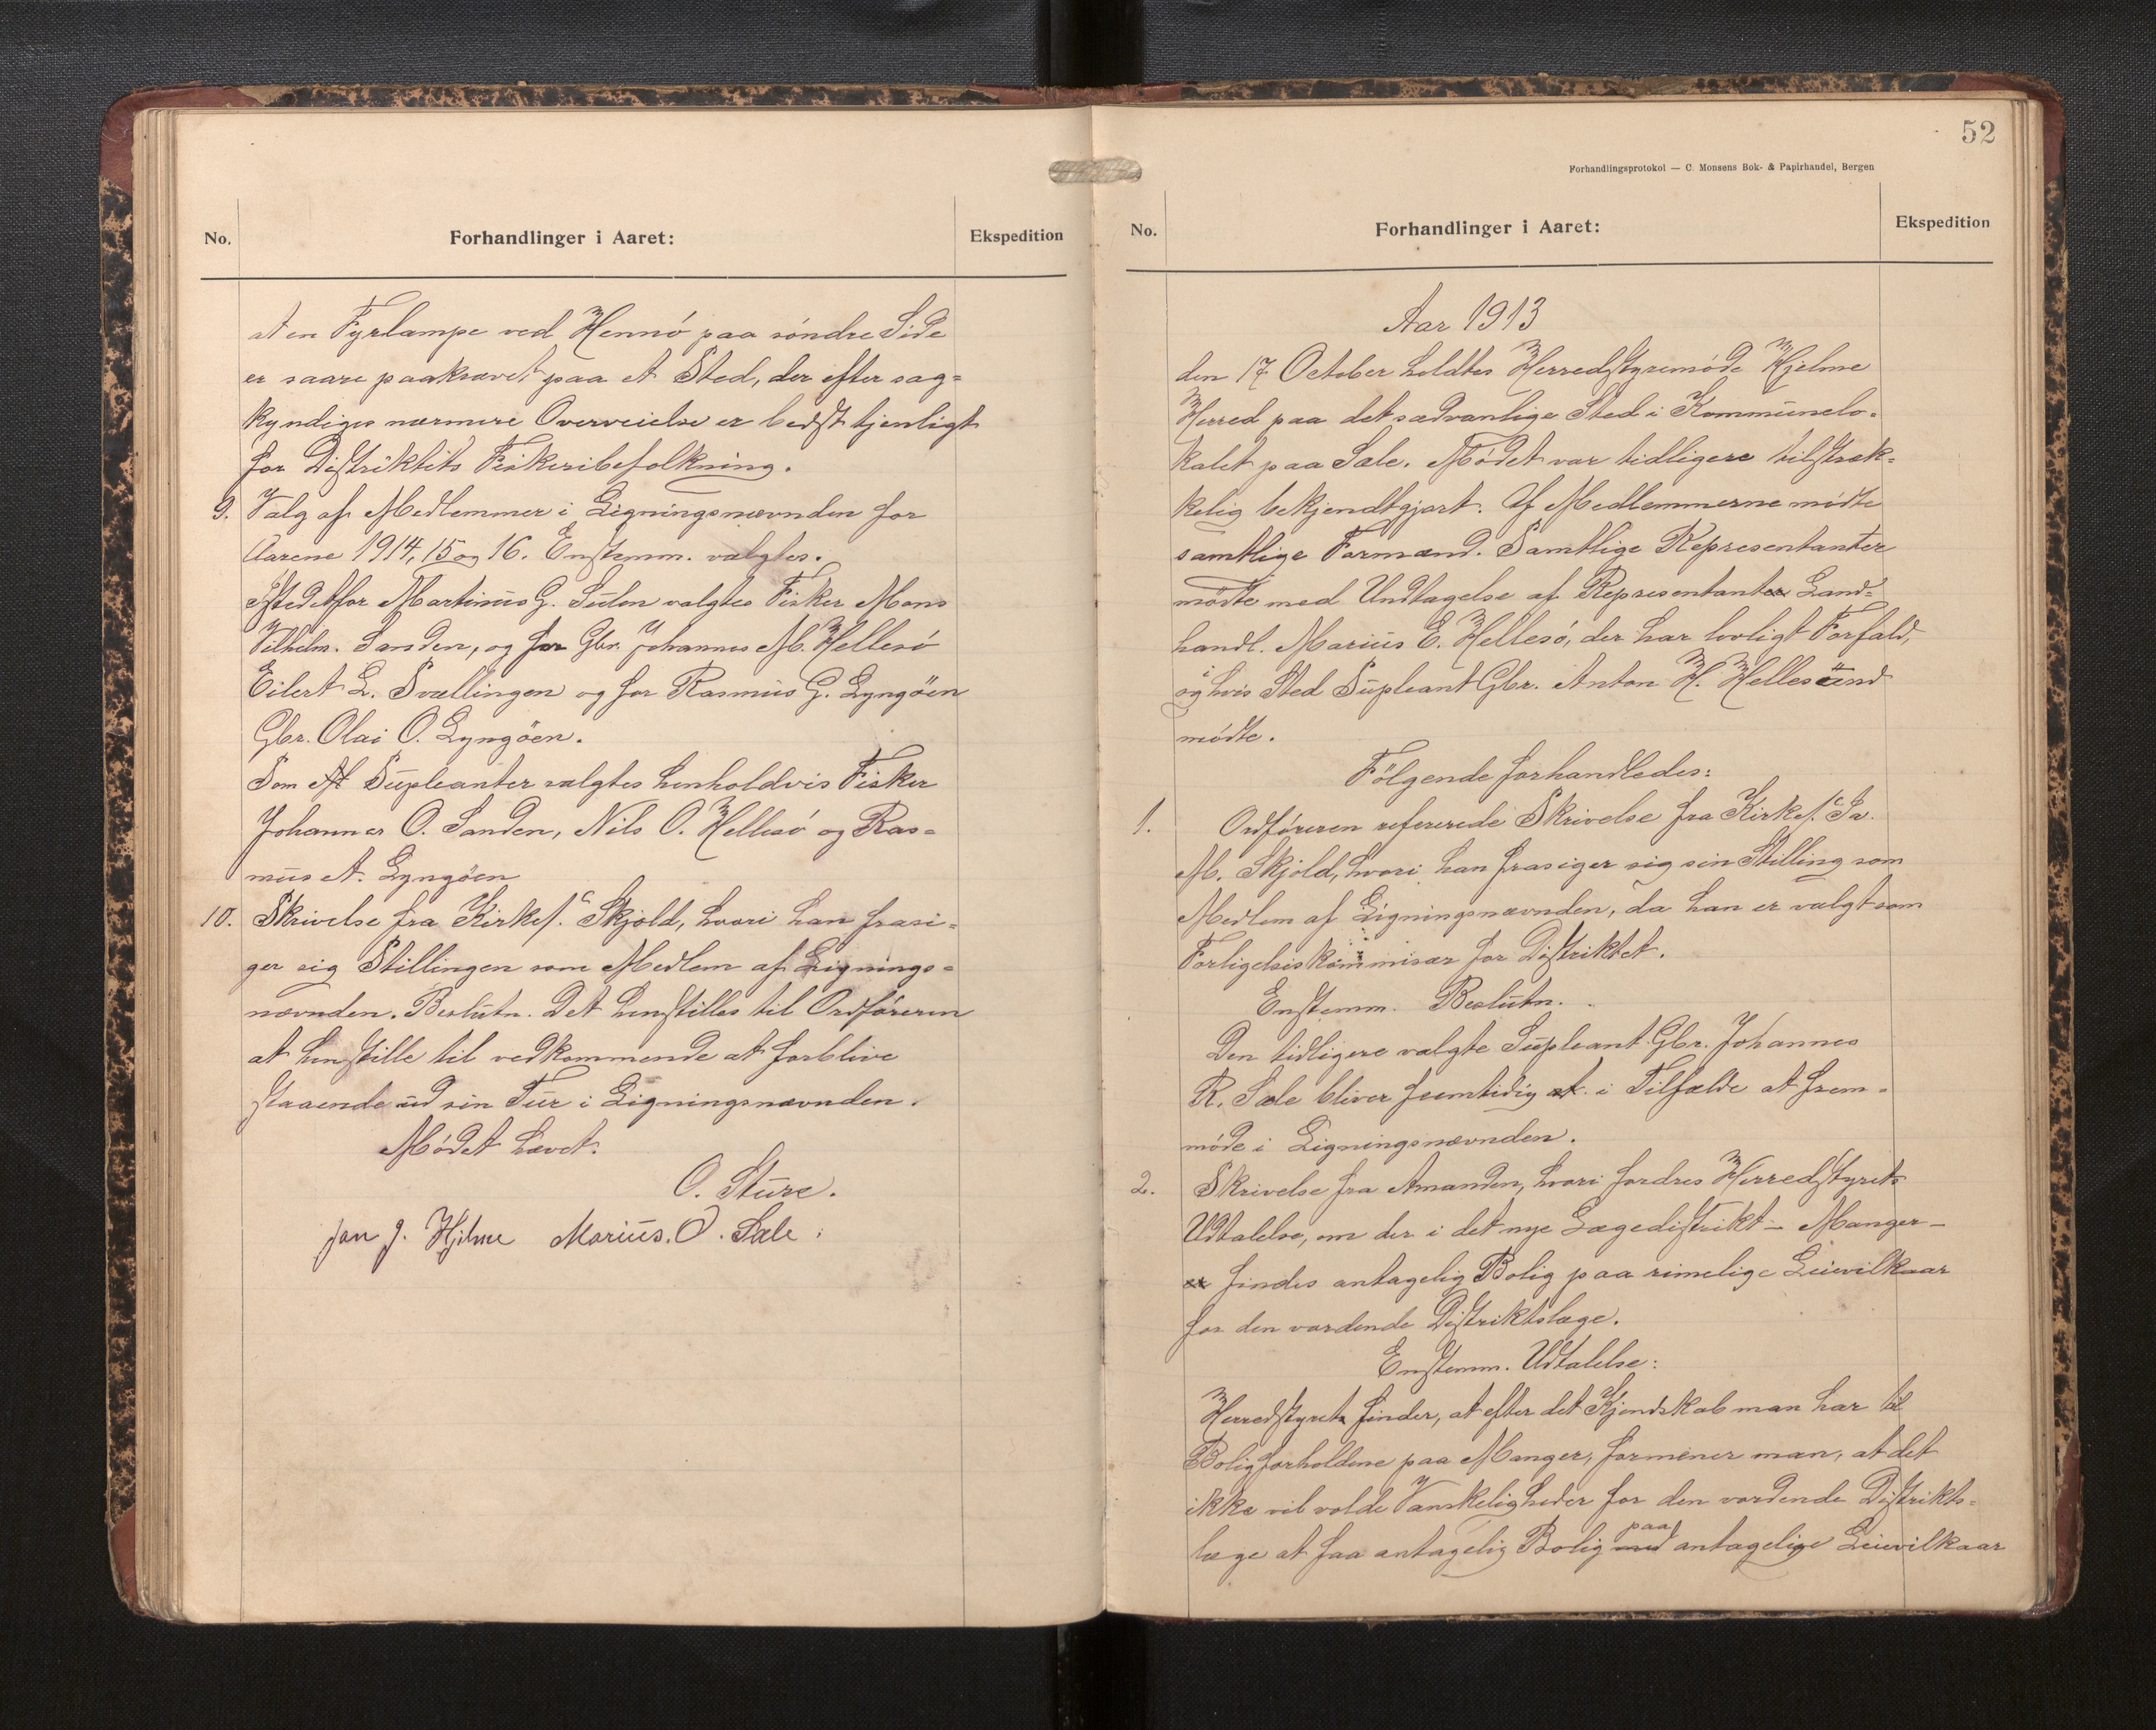 No.
Forhandlinger i Aaret:
Ekspedition
at en Fyrlampe ved Hennö paa söndre Side
er saare paakrævet paa et Sted, der efter sag-
kyndiges nærmere Overveielse er bedst tjenligt
for Distriktets Fiskeribefolkning.
9. Valg af Medlemmer i Ligningsnævnden for
Aarene 1914, 15 og 16. Enstemm. valgtes.
Istedetfor Martinus G. Sulen valgtes Fisker Mons
Vilhelm. Sanden, og for Gbr. Johannes M. Hellesö
Eilert L. Svællingen og for Rasmus G. Lyngöen
Gbr. Olai O. Lyngöen.
Som Supleanter valgtes henholdvis Fisker
Johannes O. Sanden, Nils O. Hellesö og Ras-
mus A. Lyngöen
10. Skrivelse fra Kirkes. Skjold, hvori han frasi-
ger sig Stillingen som Medlem af Lignings-
nævnden. Beslutn. Det henstilles til Ordföreren
at henstille til vedkommende at forblive
staaende ud sin Tur i Ligningsnævnden.
Mödet hævet.
O. Sture.
Jan J. Hjelme Marius. O. Sæle.
52
Forhandlingsprotokol — C. Monsens Bok- & Papirhandel, Bergen
No.
Forhandlinger i Aaret:
Ekspedition
Aar 1913
den 17 October holdtes Herredstyremöde Hjelme
Herred paa det sædvanlige Sted i Kommunelo-
kalet paa Sæle. Mödet var tidligere tilstræk-
kelig bekjendtgjort. Af Medlemmerne mödte
samtlige Formænd. Samtlige Representanter
mödte med Undtagelse af Representanten Land-
handl. Marius E. Hellesö, der har lovligt Forfald,
og i hvis Sted Supleant Gbr. Anton H. Hellesund
mödte.
Fölgende forhandledes:
1. Ordföreren refererede Skrivelse fra Kirkes. Ja.
M. Skjold, hvori han frasiger sig sin Stilling som
Medlem af Ligningsnævnden, da han er valgt som
Forligelseskommisær for Distriktet.
Enstemm. Beslutn.
Den tidligere valgte Supleant Gbr. Johannes
R. Sæle bliver fremtidig at i Tilfælde at frem-
möde i Ligningsnævnden.
2. Skrivelse fra Amanden, hvori fordres Herredstyrets
Udtalelse, om der i det nye Lægedistrikt - Manger -
findes antagelig Bolig paa rimelige Leievilkaar
for den vordende Distriktslæge.
Enstemm. Udtalelse:
Herredstyret finder, at efter det Kjendskab man har til
Boligforholdene paa Manger, formener man, at det
ikke vil volde Vanskeligheder for den vordende Distrikts-
læge at faa antagelig Bolig med paa antagelige Leievilkaar